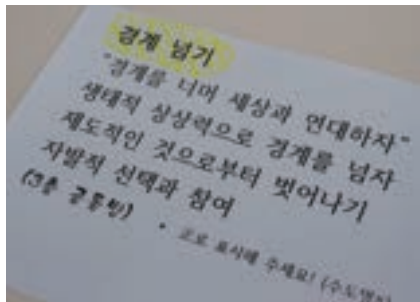 경계 넘기
"경계를 너머 세상과 연대하자"
생태적 상상력으로 경계를 넘자
제도적인 것으로부터 벗어나기
자발적 선택과 참여
(3층 공동방)
* 로 표시해 주세요!